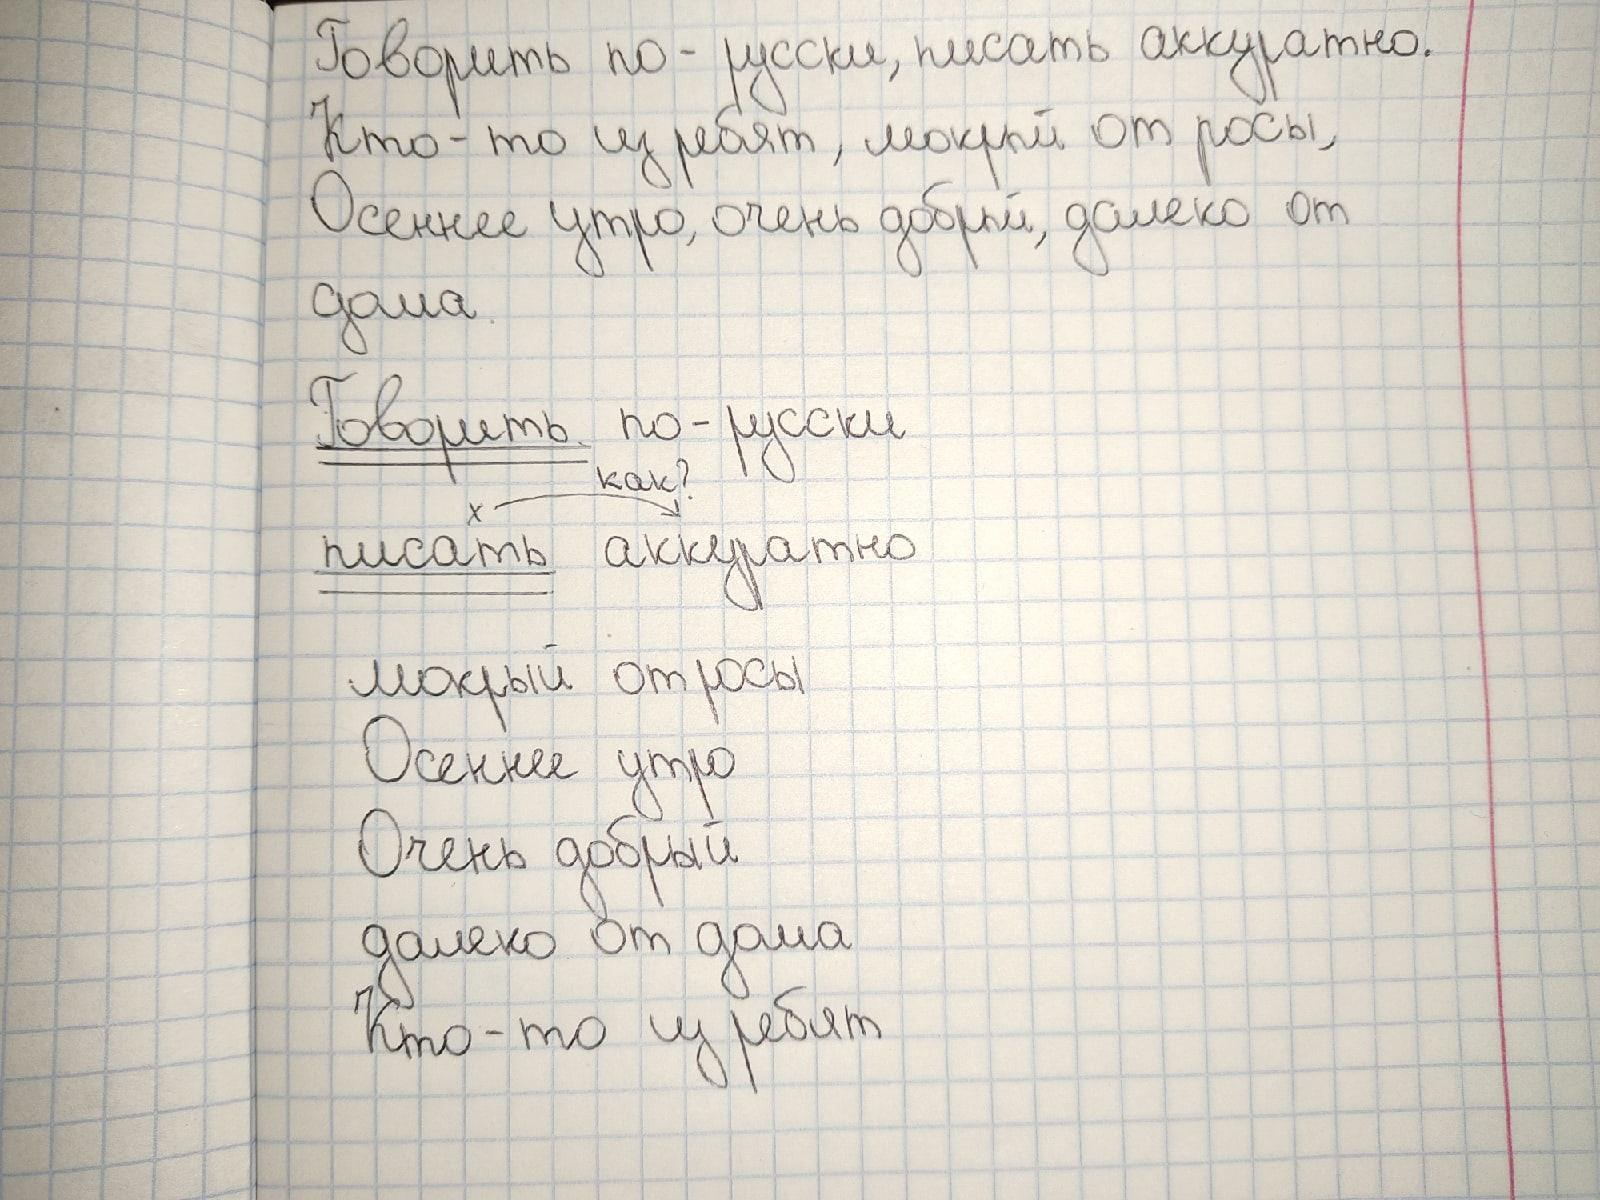 Говорить по-русски, писать аккуратно.
Кто-то из ребят, мокрый от росы,
Осеннее утро, очень добрый, далеко от
дома.
Говорить по-русски
как?
х
писать аккуратно
мокрый от росы
Осеннее утро
Очень добрый
далеко от дома
Кто-то из ребят